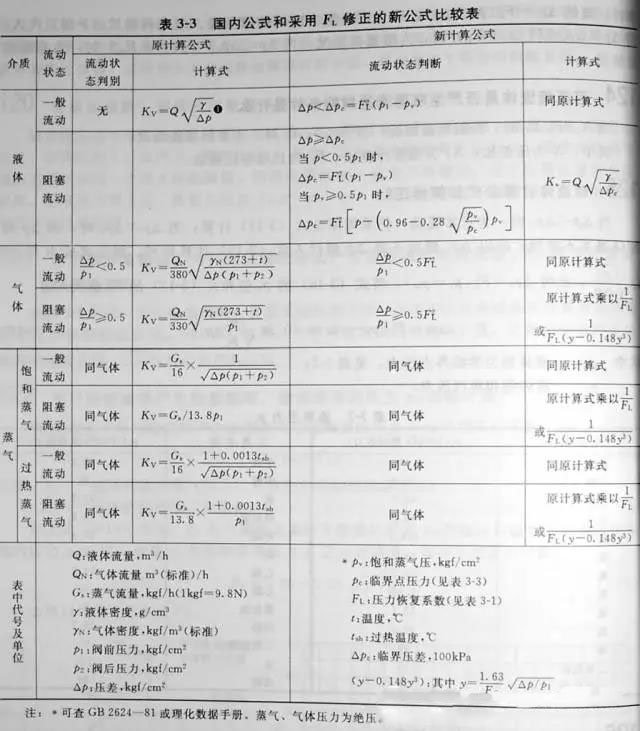 表 3-3 国内公式和采用 FL 修正的新公式比较表
介质 流动状态 原计算公式 新计算公式
流动状态判别 计算式 流动状态判断 计算式
液体 一般流动 无 KV=Q√(γ/Δp)❶ Δp<Δpc=FL²(p1-pv) 同原计算式
阻塞流动 Δp≥Δpc
当 p<0.5p1 时,
Δpc=FL²(p1-pv)
当 pv≥0.5p1 时,
Δpc=FL²[p-(0.96-0.28√(pv/pc))pv] Kv=Q√(γ/Δpc)
气体 一般流动 Δp/p1<0.5 KV=QN/380√(γN(273+t)/Δp(p1+p2)) Δp/p1<0.5FL² 同原计算式
阻塞流动 Δp/p1≥0.5 KV=QN/330√(γN(273+t))/p1 Δp/p1≥0.5FL² 原计算式乘以1/FL
或1/FL(y-0.148y³)
蒸气 饱和蒸气 一般流动 同气体 KV=Gs/16×1/√Δp(p1+p2) 同气体 同原计算式
阻塞流动 同气体 KV=Gs/13.8p1 同气体 原计算式乘以1/FL
或1/FL(y-0.148y³)
过热蒸气 一般流动 同气体 KV=Gs/16×1+0.0013tsh/√Δp(p1+p2) 同气体 同原计算式
阻塞流动 同气体 KV=Gs/13.8×1+0.0013tsh/p1 同气体 原计算式乘以1/FL
或1/FL(y-0.148y³)
表中代号及单位
Q:液体流量,m³/h
QN:气体流量 m³(标准)/h
Gs:蒸气流量,kgf/h(1kgf=9.8N)
γ:液体密度,g/cm³
γN:气体密度,kgf/m³(标准)
p1:阀前压力,kgf/cm²
p2:阀后压力,kgf/cm²
Δp:压差,kgf/cm²
* pv:饱和蒸气压,kgf/cm²
pc:临界点压力(见表 3-3)
FL:压力恢复系数(见表 3-1)
t:温度,℃
tsh:过热温度,℃
Δpc:临界压差,100kPa
(y-0.148y³):其中 y=1.63/FL √Δp/p1
注: * 可查 GB 2624—81 或理化数据手册。蒸气、气体压力为绝压。